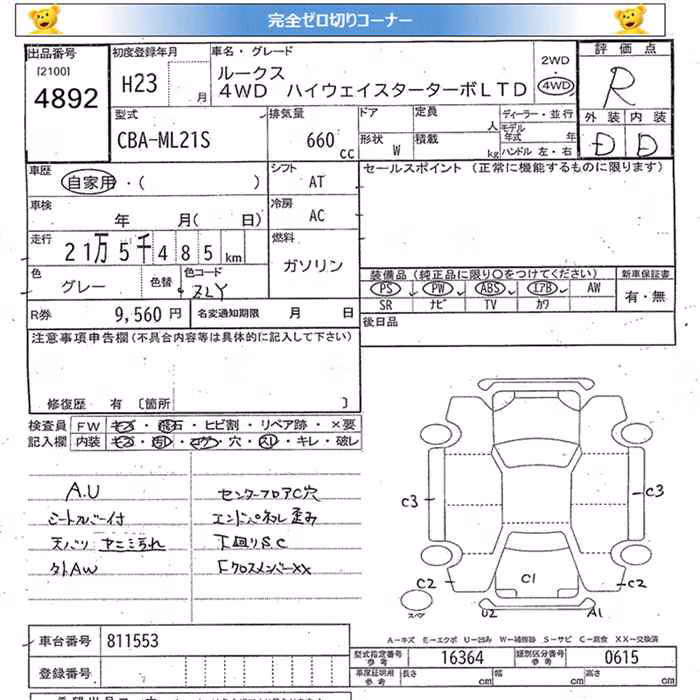 完全ゼロ切りコーナー
出品番号
[2100]
4892
初度登録年月
H23
月
車名・グレード
ルークス
4WD ハイウェイスターターボLTD
2WD
4WD
評価点
R
外装 内装
D D
型式
CBA-ML21S
排気量
660 cc
ドア
定員
人
形状
W
積載
kg
ディーラー・並行
モデル年式 年
ハンドル 左・右
車歴
自家用・( )
シフト
AT
車検
年 月( 日)
冷房
AC
走行
21万5千485 km
燃料
ガソリン
色
グレー
色替
色コード
ZLY
R券 9,560 円
名変通知期限 月 日
セールスポイント (正常に機能するものに限ります)
装備品(純正品に限り○をつけてください)
PS PW ABS エアB AW
SR ナビ TV カワ
新車保証書
有・無
後日品
注意事項申告欄(不具合内容等は具体的に記入して下さい)
修復歴 有 〔箇所 〕
検査員記入欄
FW キズ・飛石・ヒビ割・リペア跡・×要
内装 キズ・汚れ・コゲ・穴・スレ・キレ・破レ
A.U
シートカバー付
天バリ ヤニ汚れ
外AW
センターフロアC穴
エンドパネル歪み
下廻りSC
FクロスメンバーXX
C3
C3
C2
C1
C2
スペア
U2
A1
A－キズ E－エクボ U－凹み W－補修跡 S－サビ C－腐食 XX－交換済
車台番号 811553
登録番号
型式指定番号 参考 16364
類別区分番号 参考 0615
車庫証明用 参考
長さ cm
幅 cm
高さ cm